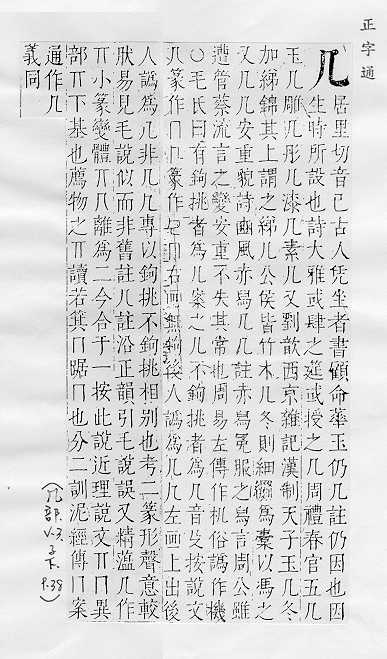 正字通
几
居里切音己古人凭坐者書顧命華玉仍几註仍因也因
生時所設也詩大雅或肆之筵或授之几周禮春官五几
玉几雕几彤几漆几素几又劉歆西京雜記漢制天子玉几冬
加綈錦其上謂之綈几公侯皆竹木几冬則細罽爲橐以馮之
又几几安重貌詩豳風赤舄几几註赤舄冕服之舄言周公雖
遭管蔡流言之變安重不失其常也周易左傳作机俗譌作機
○毛氏曰有鉤挑者爲几案之几不鉤挑者爲几音殳按說文
几篆作冂几篆作右画無鉤後人譌爲几几左画上出後
人譌爲几非几几專以鉤挑不鉤挑相別也考二篆形聲意較
狀易見毛說似而非舊註几註沿正韻引毛說誤又精薀几作
丌小篆變體丌几離爲二今合于一按此說近理說文丌冂異
部丌下基也薦物之丌讀若箕冂踞冂也分二訓泥經傳冂案
通作几
義同
(几部. V.3. 子下. P.38)